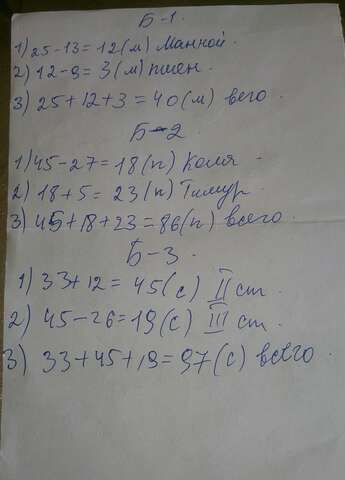 Б-1
1) 25-13=12(м) Манной.
2) 12-9=3(м) пшен.
3) 25+12+3=40(м) вего.
Б-2
1) 45-27=18(п) Коля
2) 18+5=23(п) Тимур.
3) 45+18+23=86(п) всего.
Б-3
1) 33+12=45(с) II ст.
2) 45-26=19(с) III ст.
3) 33+45+19=97(с) всего.